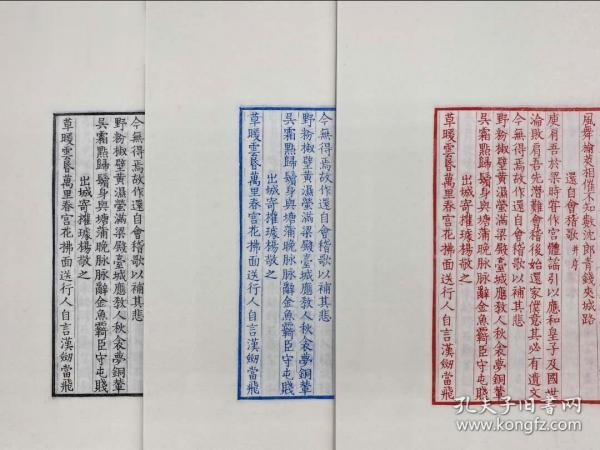 風舞榆莢相催不知數沈郎青錢夾城路
還自會稽歌 并序
庾肩吾於梁時嘗作宮體謠引以應和皇子及國世
淪敗肩吾先潛難會稽後始還家僕意其必有遺文
今無得焉故作還自會稽歌以補其悲
野粉椒壁黃濕螢滿梁殿臺城應教人秋衾夢銅輦
吳霜點歸鬢身與塘蒲晚脉脉辭金魚羈臣守屯賤
出城寄權璩楊敬之
草暖雲昬萬里春宮花拂面送行人自言漢劒當飛
今無得焉故作還自會稽歌以補其悲
野粉椒壁黃濕螢滿梁殿臺城應教人秋衾夢銅輦
吳霜點歸鬢身與塘蒲晚脉脉辭金魚羈臣守屯賤
出城寄權璩楊敬之
草暖雲昬萬里春宮花拂面送行人自言漢劒當飛
今無得焉故作還自會稽歌以補其悲
野粉椒壁黃濕螢滿梁殿臺城應教人秋衾夢銅輦
吳霜點歸鬢身與塘蒲晚脉脉辭金魚羈臣守屯賤
出城寄權璩楊敬之
草暖雲昬萬里春宮花拂面送行人自言漢劒當飛
孔夫子旧书网
www.kongfz.com